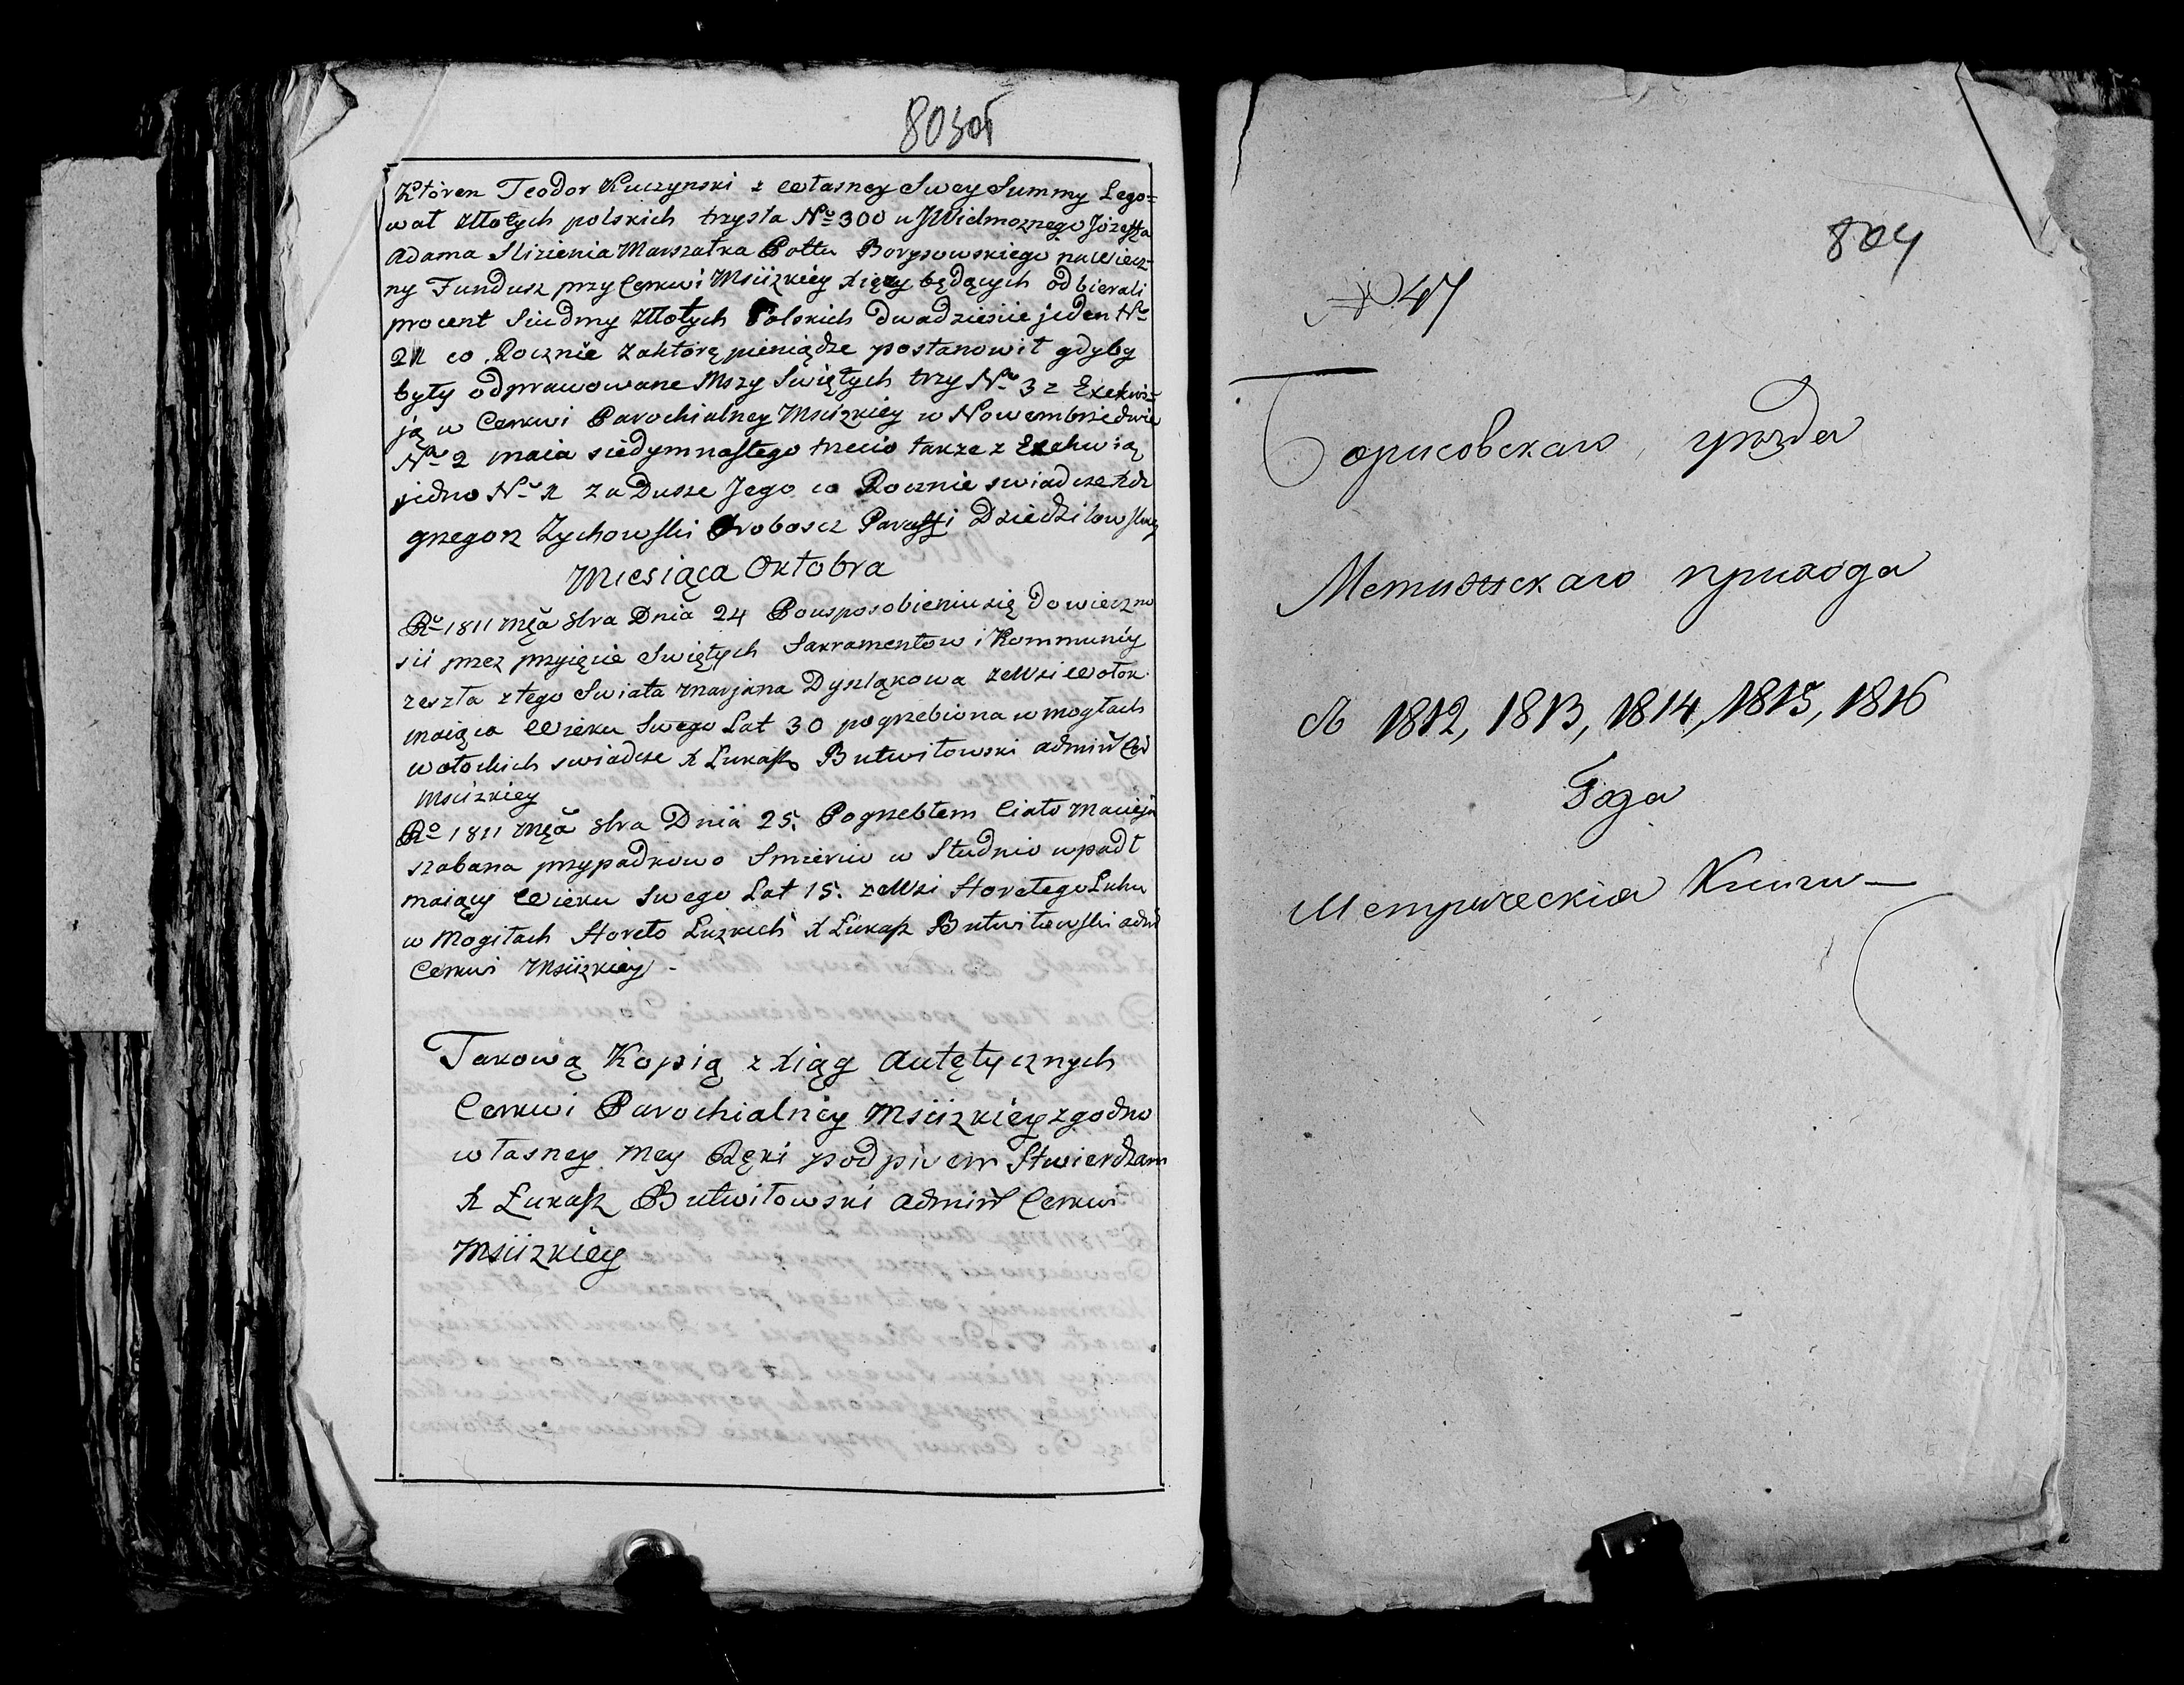 803об
Ktòren Teodor Kuczynski z własney Swey Summy Lego=
wał złłotych polskich trzysta No 300 u JWielmoznego Józeffa
Adama Slizienia Marszałka Pottu Borysowskiego na wiecz-
ny Fundusz przy Cerkwi Msciżkiey xięży będących odbierali
procent Siudmy złłotych Polskich dwadziescie jeden No
21 co Rocznie zaktorę pieniądze postanowił gdyby
były odprawowane Mszy Swiętych trzy No 3 z Exekwi-
ją w Cerkwi Parochialney Msciżkiey w Nowembrze dwie
No 2 maia siedymnastego trecio takze z Exekwią
jedno No 1 za Dusze Jego co Rocznie swiadcze Xdz
grzegorz Zychowski Proboscz Paraffi Dziedziłowskey
Miesiąca Oktobra
Ru 1811 męa 8bra Dnia 24 Pousposobieniusię do wieczno
sci przez przyięcie Swiętych Sakramentow i Kommuniy
zeszła ztego Swiata Marjana Dyszląkowa zeWsi Wołok
maiąca Wieku Swego Lat 30 pogrzebiona w mogłach
wołockich swiadcze X Łukasz Butwiłowski admin Cer
Msciżkiey
Ro 1811 męa 8bra Dnia 25. Pogrzebłem Ciało Macieja
szabana przypadkowo Smierciu w Studnio wpadł
maiący Wieku Swego Lat 15. zeWsi Horełego Łuhu
w Mogiłach Horeło Łużkich X Łukasz Butwiłowski adm
Cerkwi Msciżkiey -
Takową Kopią z xiąg autętycznych
Cerkwi Parochialnéy Msciżkiey zgodno
własney mey Ręki podpisem Stwierdzam
X Łukasz Butwiłowski admin Cerkwi
Msciżkiey
804
№ 47
Борисовскаго уѣзда
Мстижскаго прихода
За 1812, 1813, 1814, 1815, 1816
Года
Метрическія Книги